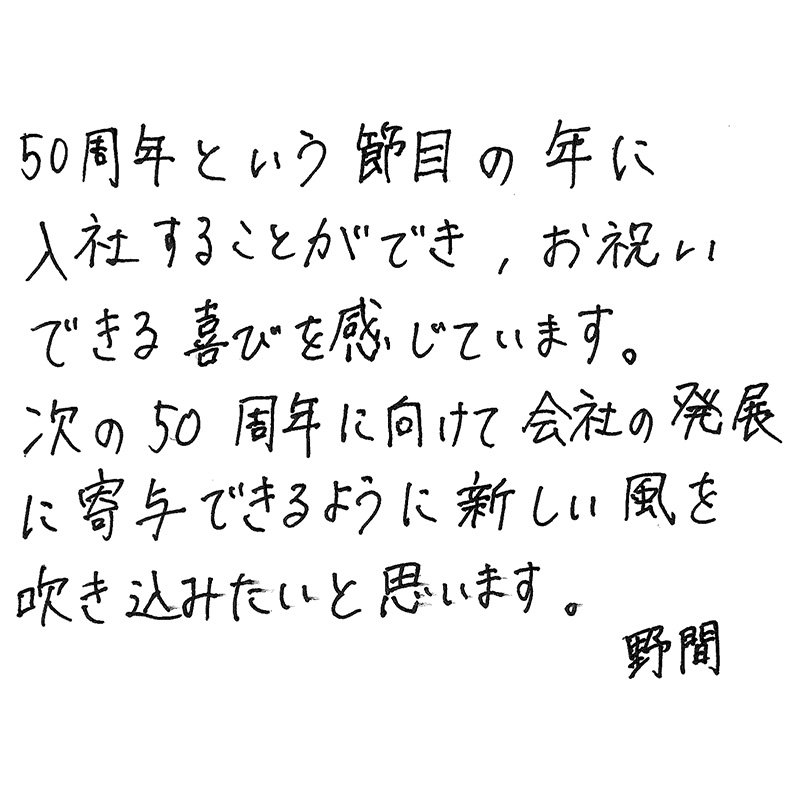 50周年という節目の年に
入社することができ,お祝い
できる喜びを感じています。
次の50周年に向けて会社の発展
に寄与できるように新しい風を
吹き込みたいと思います。
野間